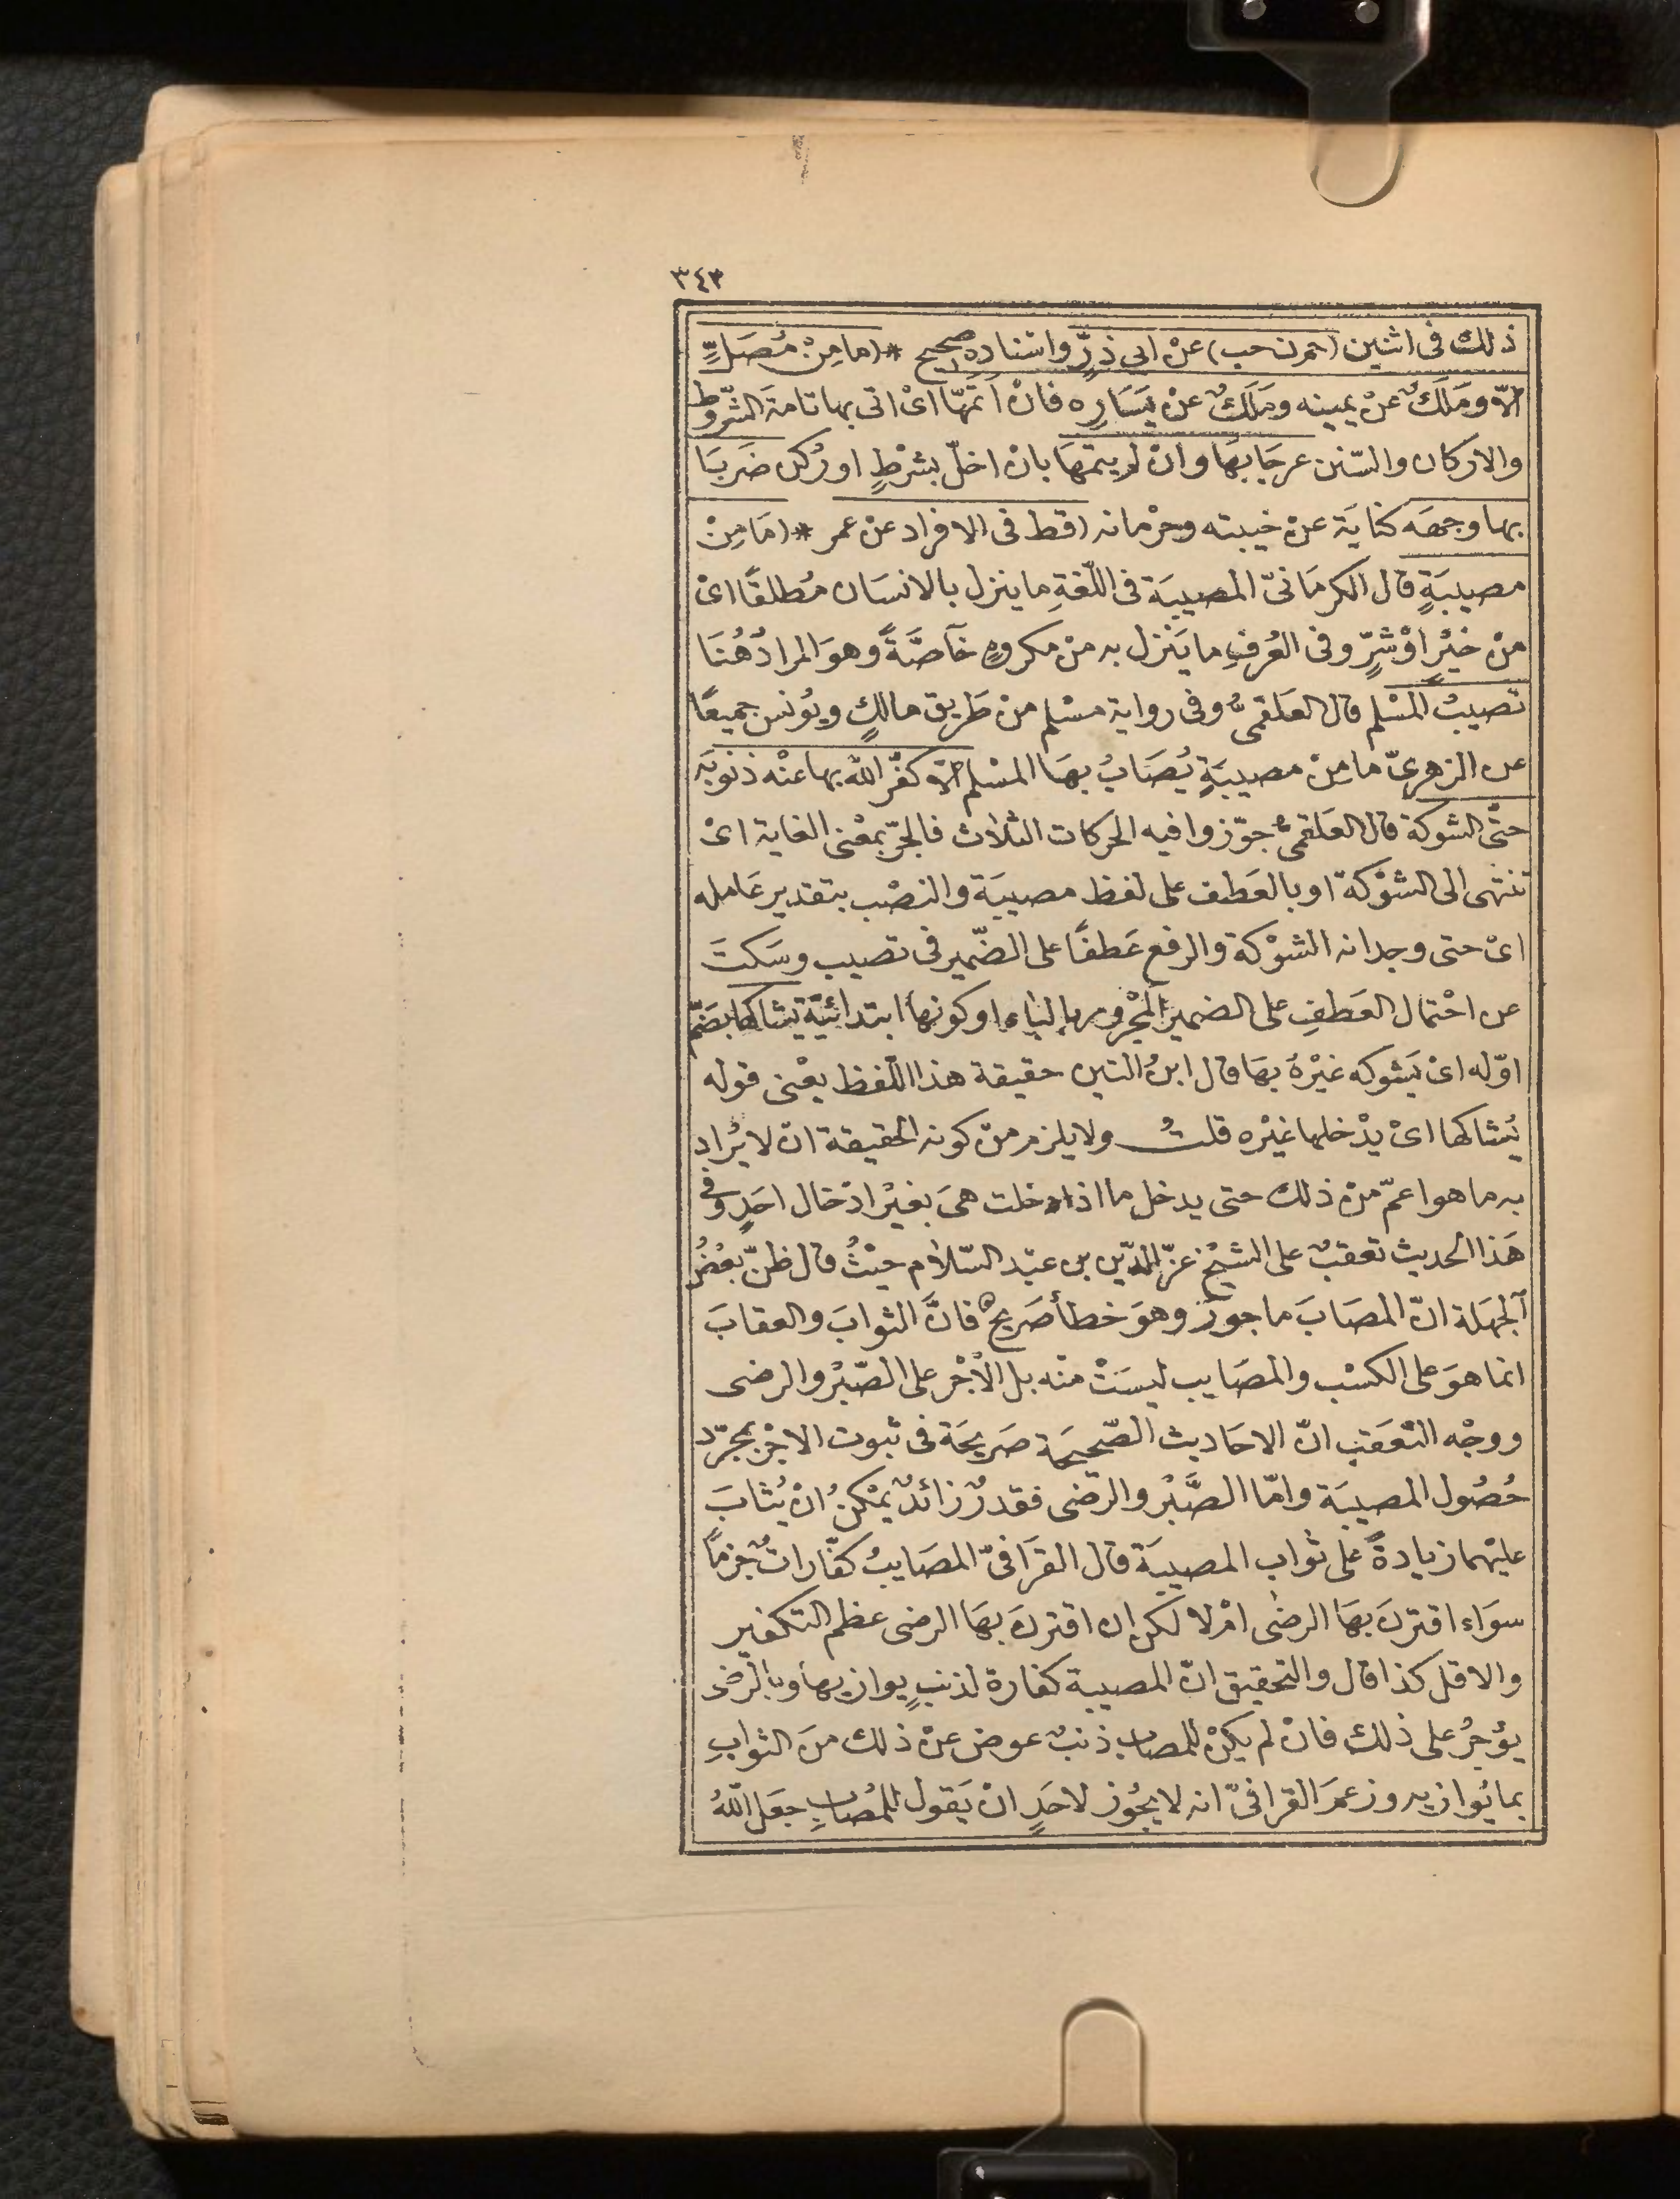 ٣٤٣
ذلك فى اثنين (حم ن حب) عنْ ابي ذرٍّ واسْناده صحيح * (مامِنْ مُصَلٍّ
الّا ومَلَكٌ عنْ يمينه ومَلَكٌ عنْ يَسَارِه فانْ اَتمَّهَا اىْ اتى بها تامةَ الشّروط
والاركان والسّنن عرجَا بهَا وانْ لم يتمهَا بانْ اخلّ بشرْطٍ او رُكن ضَربَا
بها وجهَه كنايَة عنْ خيبته وحرْمانه (قط فى الافراد عنْ عمر * (مَا مِنْ
مصيبَةٍ قال الكرمَانىّ المصيبَة فى اللّغةِ ما ينزل بالانسَان مُطلقًا اىْ
منْ خيْرٍ اوْ شرٍّ وفى العُرفِ ما يَنزل به منْ مكروهٍ خآصَّةً وهوَ المرادُ هُنَا
تصيبُ المسْلم قال العَلقمىّ وفى رواية مسْلم منْ طَريق مالكٍ ويوُنس جميعًا
عن الزهرىّ ما منْ مصيبَةٍ يُصَابُ بهَا المسْلم الّا كفّر اللّه بها عنْه ذنوبَه
حتّى الشوكة قال العَلقمىّ جوّزوا فيه الحركات الثلاث فالجرّ بمعْنى الغاية اىْ
تنتهى الى الشوْكة او بالعَطف على لفظ مصيبَة والنصْب بتقدير عَامله
اىْ حتى وجدانه الشوْكة والرفع عَطفًا على الضّمير فى تصيب وسَكتَ
عن احْتمال العَطفِ على الضمير المجْرور بالباء او كونهَا ابتدائيّةَ يُشاكها بضمّ
اوّله اىْ يَشوكه غيْرُه بهَا قال ابنُ التين حقيقة هذا اللّفظ يعْنى قوله
يُشاكها اىْ يدْخلها غيْره قلتُ ولا يلزم منْ كونه الحقيقة انْ لا يُراد
به ما هو اعمّ منْ ذلك حتى يدخل ما اذا دخلت هىَ بغيْر ادْخال احَدٍ وفى
هَذا الحديث تعقبٌ على الشيْخ عزّ الدّين بن عبْد السّلام حيْثُ قال ظنّ بعْضُ
اَلجهَلة انّ المصَابَ ماجورٌ وهوَ خطأ صَريحٌ فانَّ الثوابَ والعقابَ
انما هوَ على الكسْب والمصَايب ليسَتْ منْه بل الأجْر على الصّبْر والرضى
ووجْه التعَقب انّ الاحَاديث الصّحيحَة صَريحَة فى ثبوت الاجْر بمجرّد
حُصُول المصيبَة وامّا الصَّبْر والرّضى فقدرٌ زائدٌ يمْكنُ انْ يُثابَ
عليْهما زيادةً على ثواب المصيبَة قال القرَافىّ المصَايبُ كفّاراتٌ جزمًا
سوَاء اقترنَ بهَا الرضى امْ لا لكن ان اقترنَ بهَا الرضى عظم التكفير
والا قلّ كذا قال والتحقيق انّ المصيبة كفارة لذنبٍ يوازيها وبالرضى
يوُجرُ على ذلك فانْ لم يكنْ للمصابِ ذنبٌ عوض عنْ ذلك منَ الثوابِ
بما يُوازيه وزعمَ القرافىّ انه لا يجُوز لاحَدٍ انْ يَقول للمُصابِ جعَل اللّهُ